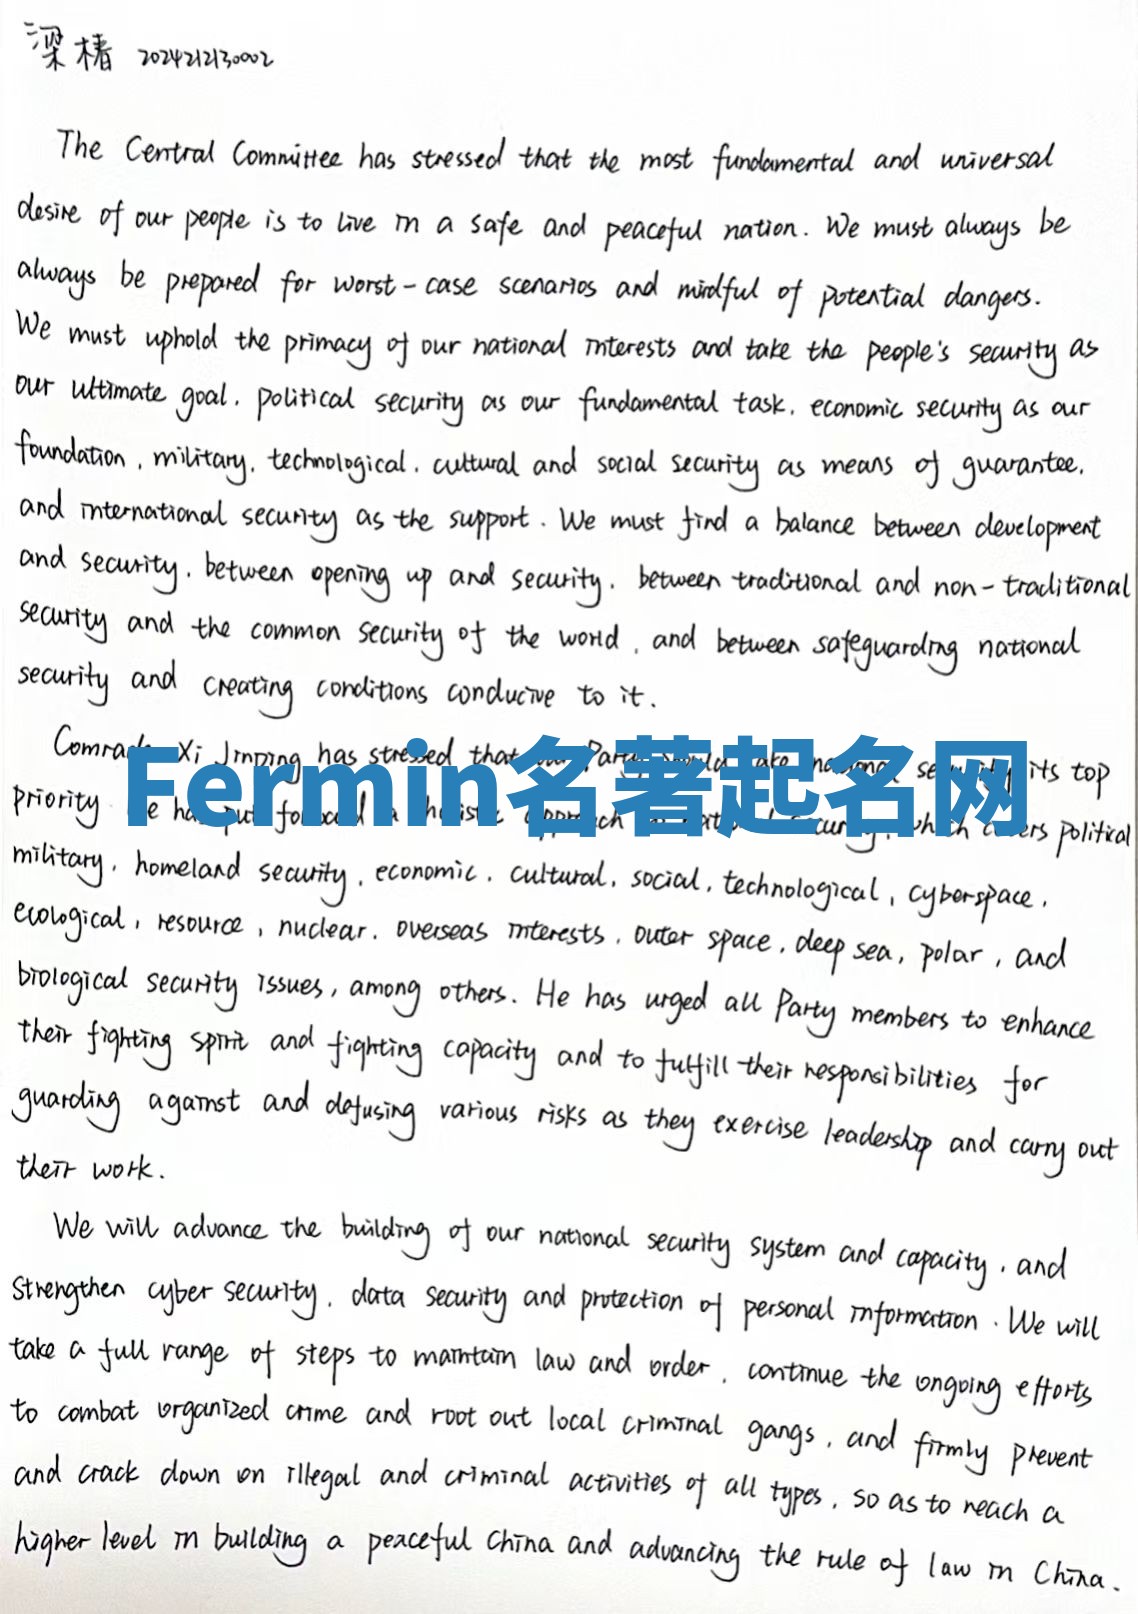 梁椿 2024212130002
The Central Committee has stressed that the most fundamental and universal
desire of our people is to live in a safe and peaceful nation. We must always be
always be prepared for worst-case scenarios and mindful of potential dangers.
We must uphold the primacy of our national interests and take the people's security as
our ultimate goal, political security as our fundamental task, economic security as our
foundation, military, technological, cultural and social security as means of guarantee,
and international security as the support. We must find a balance between development
and security, between opening up and security, between traditional and non-traditional
security and the common security of the world, and between safeguarding national
security and creating conditions conducive to it.
Comrade Xi Jinping has stressed that Party should take national security its top
Fermin名著起名网
priority He has put forward a holistic approach national security, which covers political
military, homeland security, economic, cultural, social, technological, cyberspace,
ecological, resource, nuclear, overseas interests, outer space, deep sea, polar, and
biological security issues, among others. He has urged all Party members to enhance
their fighting spirit and fighting capacity and to fulfill their responsibilities for
guarding against and defusing various risks as they exercise leadership and carry out
their work.
We will advance the building of our national security system and capacity, and
strengthen cyber security, data security and protection of personal information. We will
take a full range of steps to maintain law and order, continue the ongoing efforts
to combat organized crime and root out local criminal gangs, and firmly prevent
and crack down on illegal and criminal activities of all types, so as to reach a
higher level in building a peaceful China and advancing the rule of law in China.